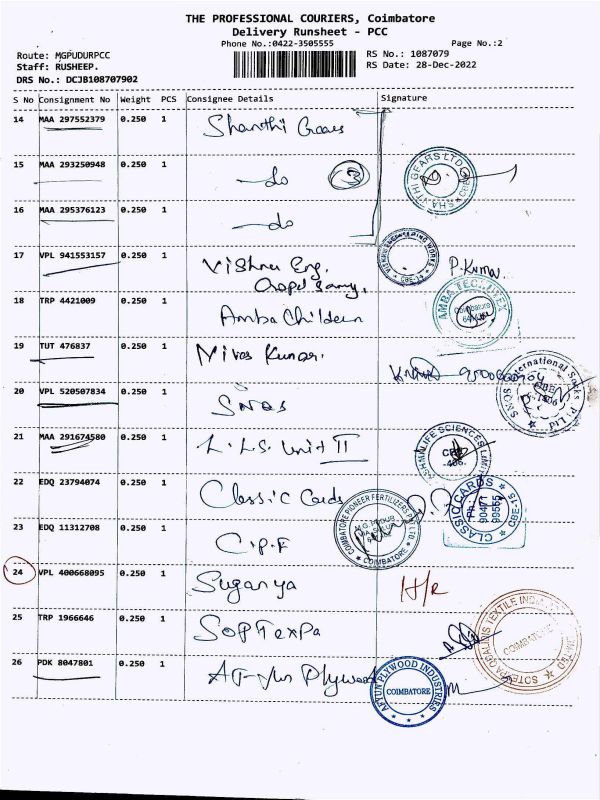 THE PROFESSIONAL COURIERS, Coimbatore
Delivery Runsheet - PCC
Phone No.:0422-3505555
Page No.:2
Route: MGPUDURPCC
RS No.: 1087079
Staff: RUSHEEP.
RS Date: 28-Dec-2022
DRS No.: DCJB108707902
S No Consignment No Weight PCS Consignee Details Signature
14 MAA 297552379 0.250 1 Shanthi Gears
15 MAA 293250948 0.250 1 do 3
SHANTHI GEARS LTD
16 MAA 295376123 0.250 1 do
17 VPL 941553157 0.250 1 Vishnu Eng.
P. Kumar.
18 TRP 4421009 0.250 1 Amba Children
AMBA
Coimbatore
19 TUT 476837 0.250 1 Nivas Kumar.
20 VPL 520507834 0.250 1 SNQS
SNQS International Socks P. Ltd
21 MAA 291674580 0.250 1 L.L.S. Unit II
LIFE SCIENCES
22 EDQ 23794074 0.250 1 Classic Cards
CLASSIC CARDS
Ph:
90471
99555
CBE-15
23 EDQ 11312708 0.250 1 C.P.F
COIMBATORE PIONEER FERTILIZERS
COIMBATORE
24 VPL 400668095 0.250 1 Suganya H/R
25 TRP 1966646 0.250 1 SopTexpa
COIMBATORE
26 PDK 8047801 0.250 1 Plywood
AFTUN PLYWOOD INDUSTRIES
COIMBATORE